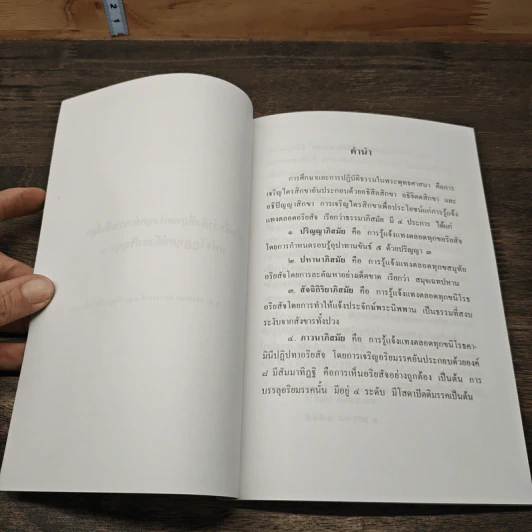 คำนำ
การศึกษาและการปฏิบัติธรรมในพระพุทธศาสนา คือการ
เจริญไตรสิกขาอันประกอบด้วยอธิสีลสิกขา อธิจิตตสิกขา และ
อธิปัญญาสิกขา การเจริญไตรสิกขาเพื่อประโยชน์แก่การรู้แจ้ง
แทงตลอดอริยสัจ เรียกว่าธรรมาภิสมัย มี ๔ ประการ ได้แก่
๑. ปริญญาภิสมัย คือ การรู้แจ้งแทงตลอดทุกขอริยสัจ
โดยการกำหนดรอบรู้อุปาทานขันธ์ ๕ ด้วยปริญญา ๓
๒. ปหานาภิสมัย คือ การรู้แจ้งแทงตลอดทุกขสมุทัย
อริยสัจโดยการละตัณหาอย่างเด็ดขาด เรียกว่า สมุจเฉทปหาน
๓. สัจฉิกิริยาภิสมัย คือ การรู้แจ้งแทงตลอดทุกขนิโรธ
อริยสัจโดยการทำให้แจ้งประจักษ์พระนิพพาน เป็นธรรมที่สงบ
ระงับจากสังขารทั้งปวง
๔. ภาวนาภิสมัย คือ การรู้แจ้งแทงตลอดทุกขนิโรธคา-
มินีปฏิปทาอริยสัจ โดยการเจริญอริยมรรคอันประกอบด้วยองค์
๘ มีสัมมาทิฏฐิ คือการเห็นอริยสัจอย่างถูกต้อง เป็นต้น การ
บรรลุอริยมรรคนั้น มีอยู่ ๔ ระดับ มีโสดาปัตติมรรคเป็นต้น
1
2